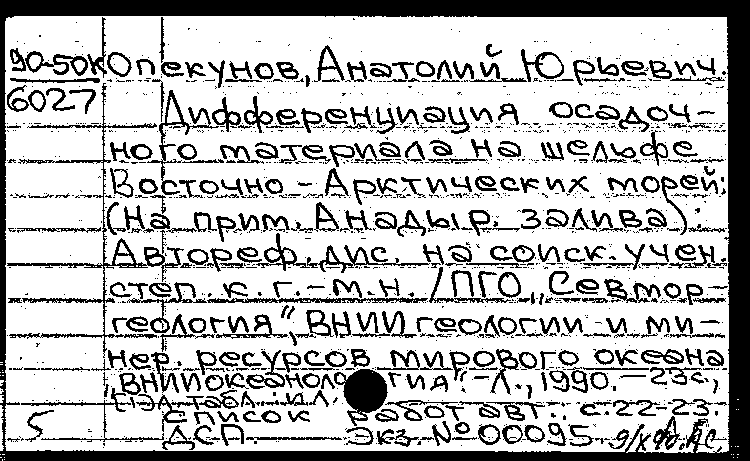 90-50к Опекунов, Анатолий Юрьевич.
6027
Дифференциация осадоч-
ного материала на шельфе
Восточно-Арктических морей:
(На прим. Анадыр. залива):
Автореф. дис. на соиск. учен.
степ. к.г.-м.н. /ПГО „Севмор-
геология", ВНИИ геологии и ми-
нер. ресурсов мирового океана
„ВНИИокеанология". - Л., 1990. - 23 с.,
табл.: ил.
5 Список работ авт.: с. 22-23.
ДСП. Экз. № 00095